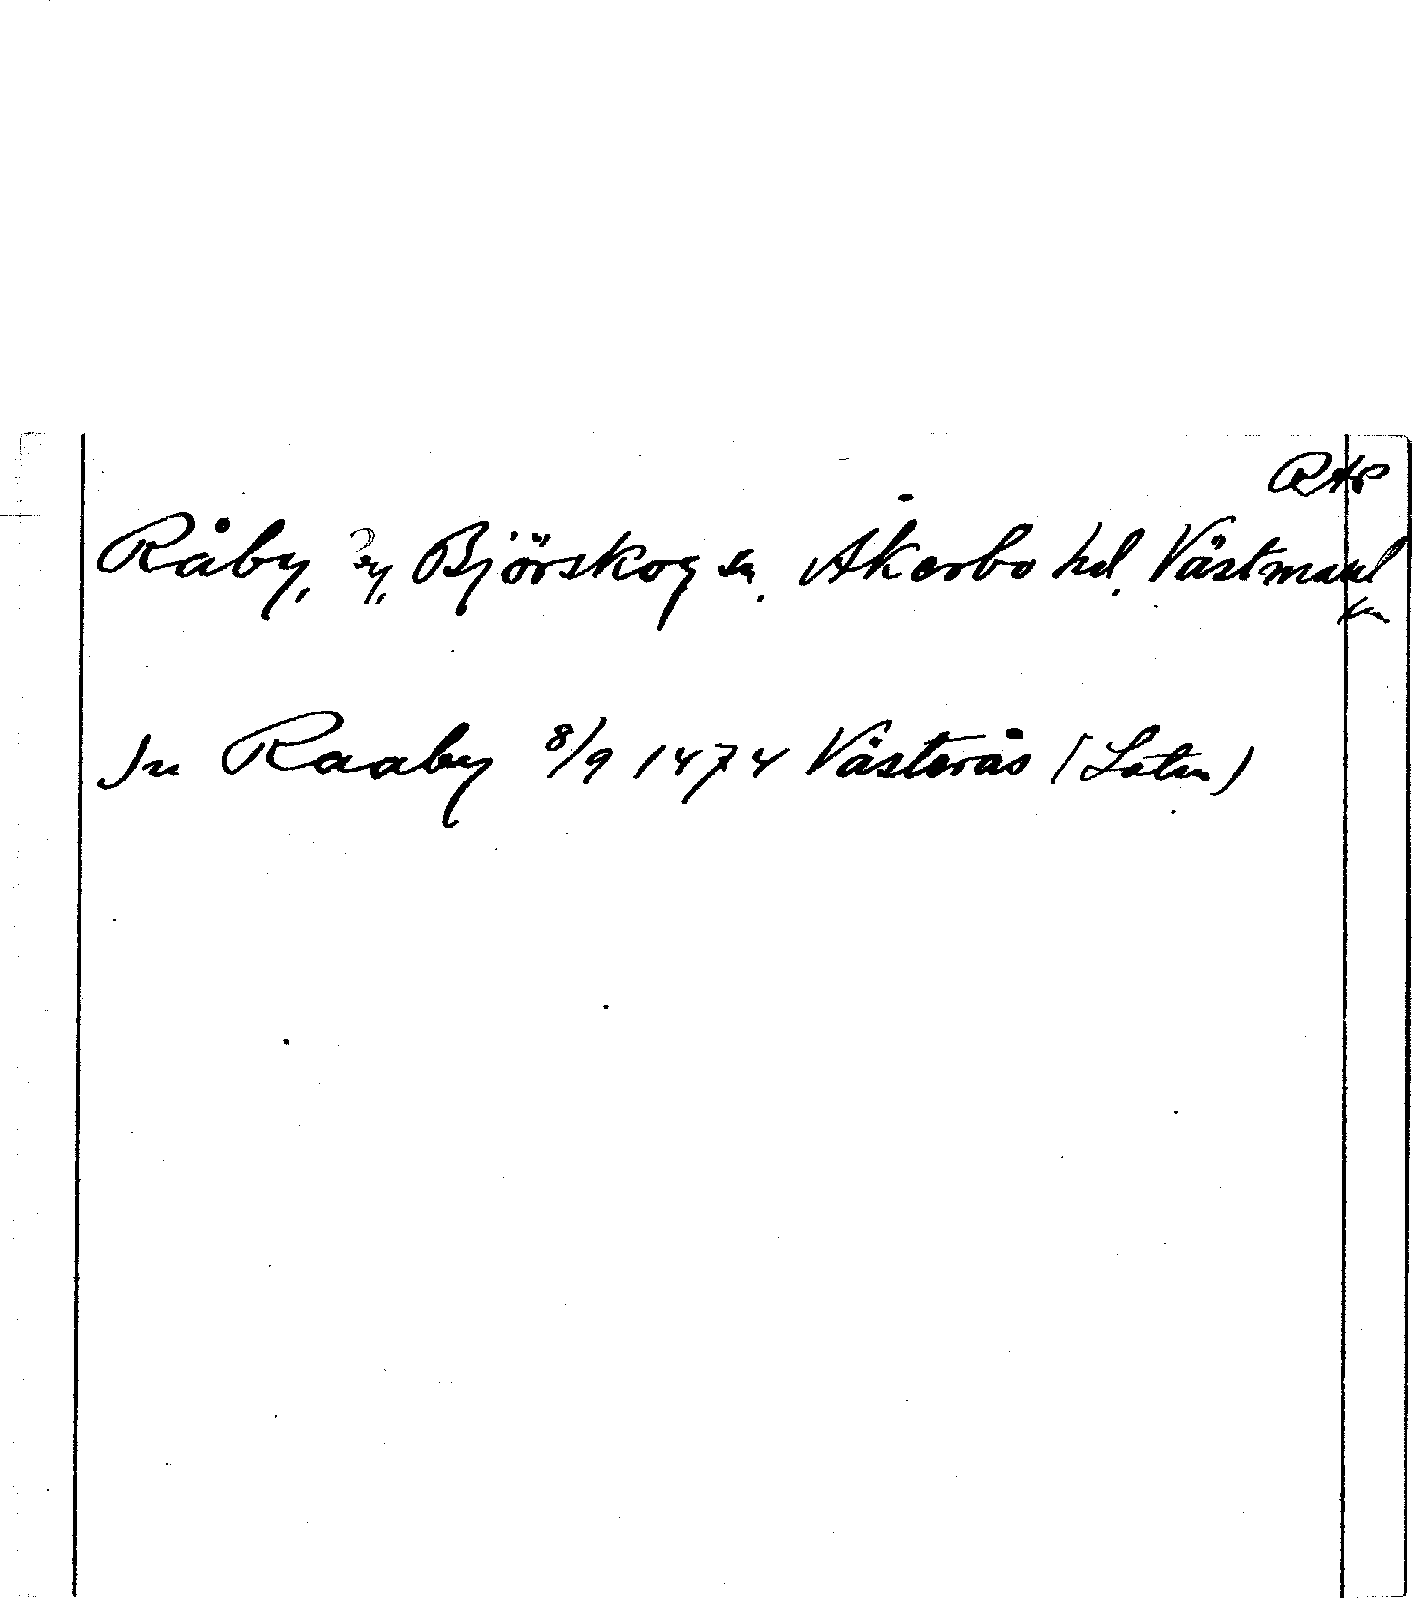 RAP
Råby, By, Björskog sn. Åkerbo hd. Västmanl
In Raaby 8/9 1474 Västerås (Latin)